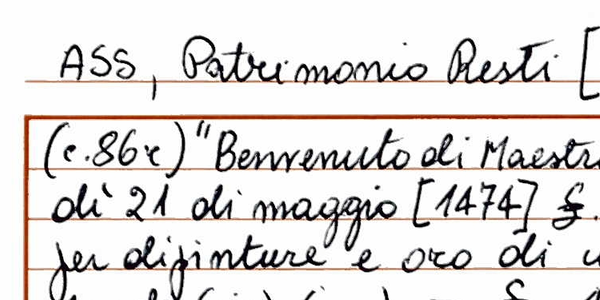 ASS, Patrimonio Resti [
(c.86r) "Benvenuto di Maestr
dì 21 di maggio [1474] £.
per dipinture e oro di